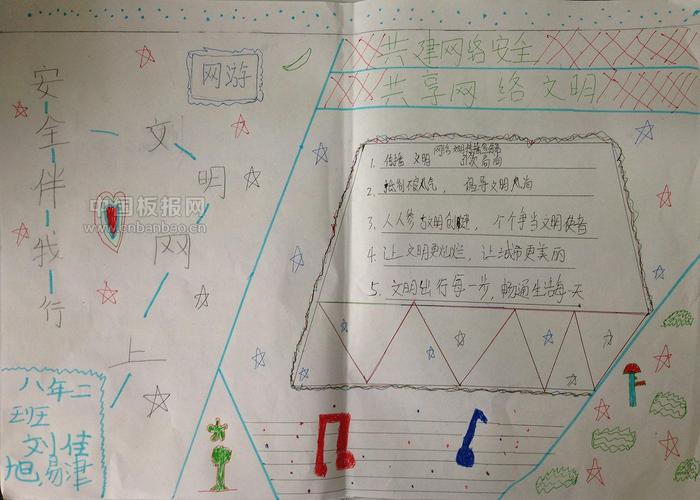 共建网络安全
共享网络文明
网游
安全伴我行
文明网上
1. 传播文明
2. 抵制不良风气，倡导文明风尚
3. 人人参与文明创建，个个争当文明使者
4. 让文明更灿烂，让城市更美丽
5. 文明出行每一步，畅通生活每一天
中国板报网
www.cnbanbao.cn
八年二
班
刘佳
旭易津